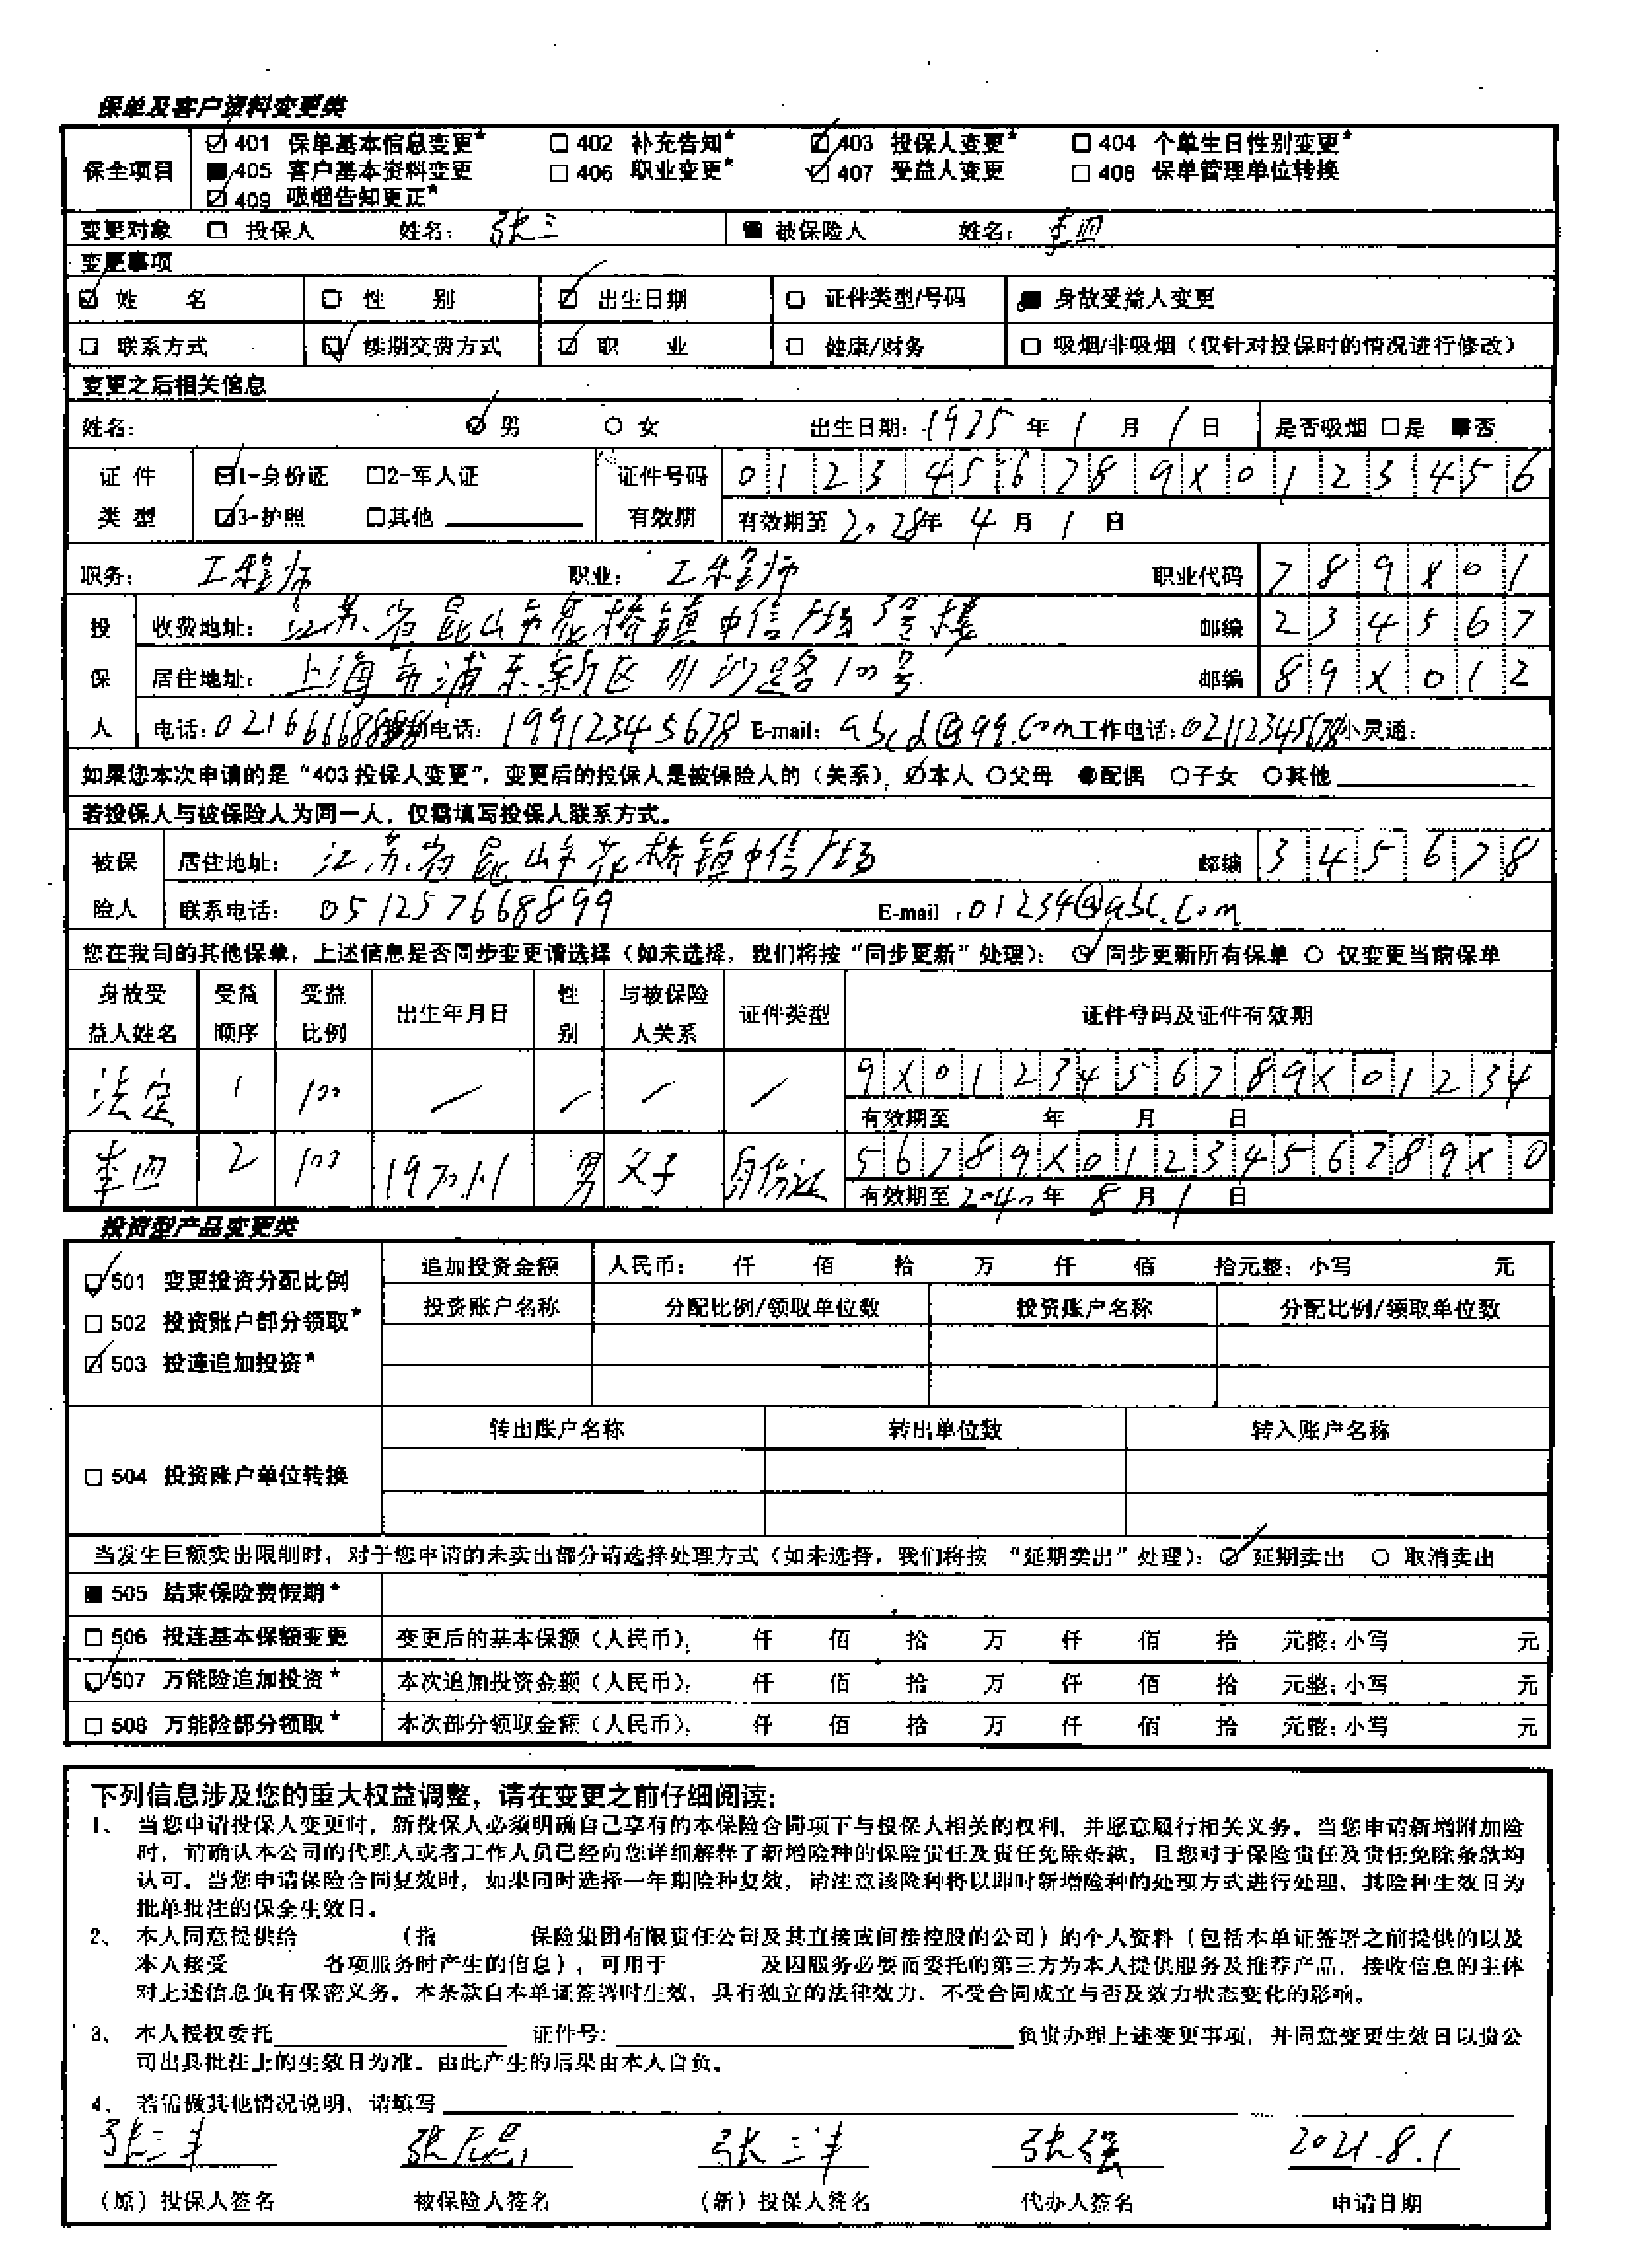 保单及客户资料变更类
保全项目 ☑ 401 保单基本信息变更* ☐ 402 补充告知* ☑ 403 投保人变更* ☐ 404 个单生日性别变更*
■ 405 客户基本资料变更 ☐ 406 职业变更* ☑ 407 受益人变更 ☐ 408 保单管理单位转换
☑ 409 吸烟告知更正*
变更对象 ☐ 投保人 姓名: 张三 ■ 被保险人 姓名: 李四
变更事项
☑ 姓名 ☐ 性别 ☑ 出生日期 ☐ 证件类型/号码 ■ 身故受益人变更
☐ 联系方式 ☑ 续期交费方式 ☑ 职业 ☐ 健康/财务 ☐ 吸烟/非吸烟（仅针对投保时的情况进行修改）
变更之后相关信息
姓名: ☑ 男 ○ 女 出生日期: 1975 年 1 月 1 日 是否吸烟 ☐是 ■否
证件 ☑1-身份证 ☐2-军人证 证件号码 0123456789X0123456
类型 ☑3-护照 ☐其他 有效期 有效期至 2028年 4 月 1 日
职务: 工程师 职业: 工程师 职业代码 789X01
投 收费地址: 江苏省昆山市花桥镇中信广场3号楼 邮编 234567
保 居住地址: 上海市浦东新区川沙路100号 邮编 89X012
人 电话: 移动电话: 19912345678 E-mail: abcd@qq.com 工作电话: 02112345678 小灵通:
如果您本次申请的是“403 投保人变更”，变更后的投保人是被保险人的（关系） ☑本人 ○父母 ●配偶 ○子女 ○其他
若投保人与被保险人为同一人，仅需填写投保人联系方式。
被保 居住地址: 江苏省昆山市花桥镇中信广场 邮编 345678
险人 联系电话: 051257668899 E-mail :01234@abc.com
您在我司的其他保单，上述信息是否同步变更请选择（如未选择，我们将按“同步更新”处理）: ☑ 同步更新所有保单 ○ 仅变更当前保单
身故受益人姓名 受益顺序 受益比例 出生年月日 性别 与被保险人关系 证件类型 证件号码及证件有效期
法定 1 100 — — — — 9X0123456789X01234
有效期至 年 月 日
李四 2 100 1970.1.1 男 父子 身份证 56789X0123456789X0
有效期至 2040 年 8 月 1 日
投资型产品变更类
☑ 501 变更投资分配比例 追加投资金额 人民币: 仟 佰 拾 万 仟 佰 拾元整; 小写 元
☐ 502 投资账户部分领取* 投资账户名称 分配比例/领取单位数 投资账户名称 分配比例/领取单位数
☑ 503 投连追加投资*
转出账户名称 转出单位数 转入账户名称
☐ 504 投资账户单位转换
当发生巨额卖出限制时，对于您申请的未卖出部分请选择处理方式（如未选择，我们将按 “延期卖出”处理）: ☑ 延期卖出 ○ 取消卖出
■ 505 结束保险费假期*
☐ 506 投连基本保额变更 变更后的基本保额（人民币）: 仟 佰 拾 万 仟 佰 拾 元整; 小写 元
☑ 507 万能险追加投资* 本次追加投资金额（人民币）: 仟 佰 拾 万 仟 佰 拾 元整; 小写 元
☐ 508 万能险部分领取* 本次部分领取金额（人民币）: 仟 佰 拾 万 仟 佰 拾 元整; 小写 元
下列信息涉及您的重大权益调整，请在变更之前仔细阅读:
1、 当您申请投保人变更时，新投保人必须明确自己享有的本保险合同项下与投保人相关的权利，并愿意履行相关义务。当您申请新增附加险
时，请确认本公司的代理人或者工作人员已经向您详细解释了新增险种的保险责任及责任免除条款，且您对于保险责任及责任免除条款均
认可。当您申请保险合同复效时，如果同时选择一年期险种复效，请注意该险种将以即时新增险种的处理方式进行处理，其险种生效日为
批单批注的保全生效日。
2、 本人同意提供给 （指 保险集团有限责任公司及其直接或间接控股的公司）的个人资料（包括本单证签署之前提供的以及
本人接受 各项服务时产生的信息），可用于 及因服务必要而委托的第三方为本人提供服务及推荐产品，接收信息的主体
对上述信息负有保密义务。本条款自本单证签署时生效，具有独立的法律效力，不受合同成立与否及效力状态变化的影响。
3、 本人授权委托 证件号: 负责办理上述变更事项，并同意变更生效日以贵公
司出具批注上的生效日为准。由此产生的后果由本人自负。
4、 若需做其他情况说明，请填写
张三丰 张三丰 张强 2021.8.1
（原）投保人签名 被保险人签名 （新）投保人签名 代办人签名 申请日期